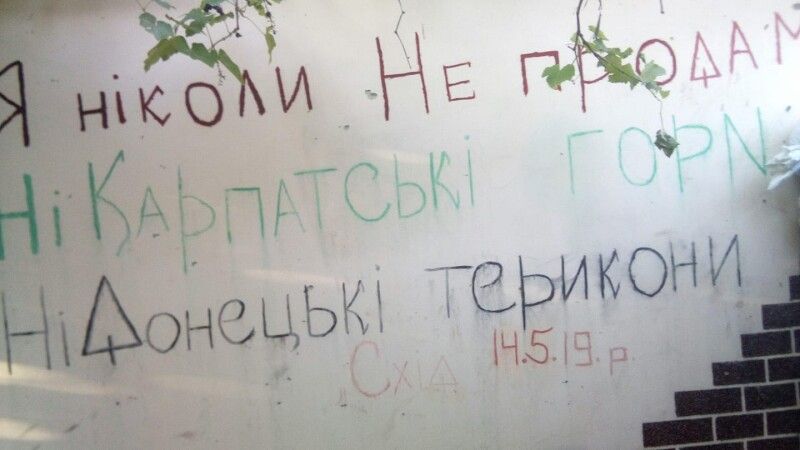 Я ніколи Не продам
Ні Карпатські гори
Ні Донецькі терикони
„Схід 14.5.19.р.